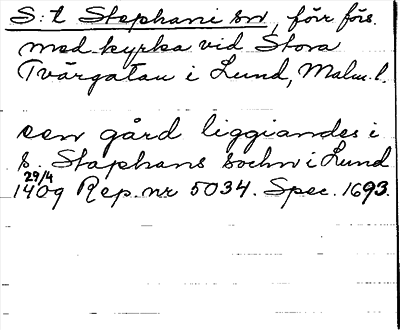 S:t Stephani sn, förr förs.
med kyrka vid Stora
Tvärgatan i Lund, Malm. l.
een gård liggiandes i
s. Staphans sochn i Lund
29/4
1409 Rep. nr 5034. Spec. 1693.